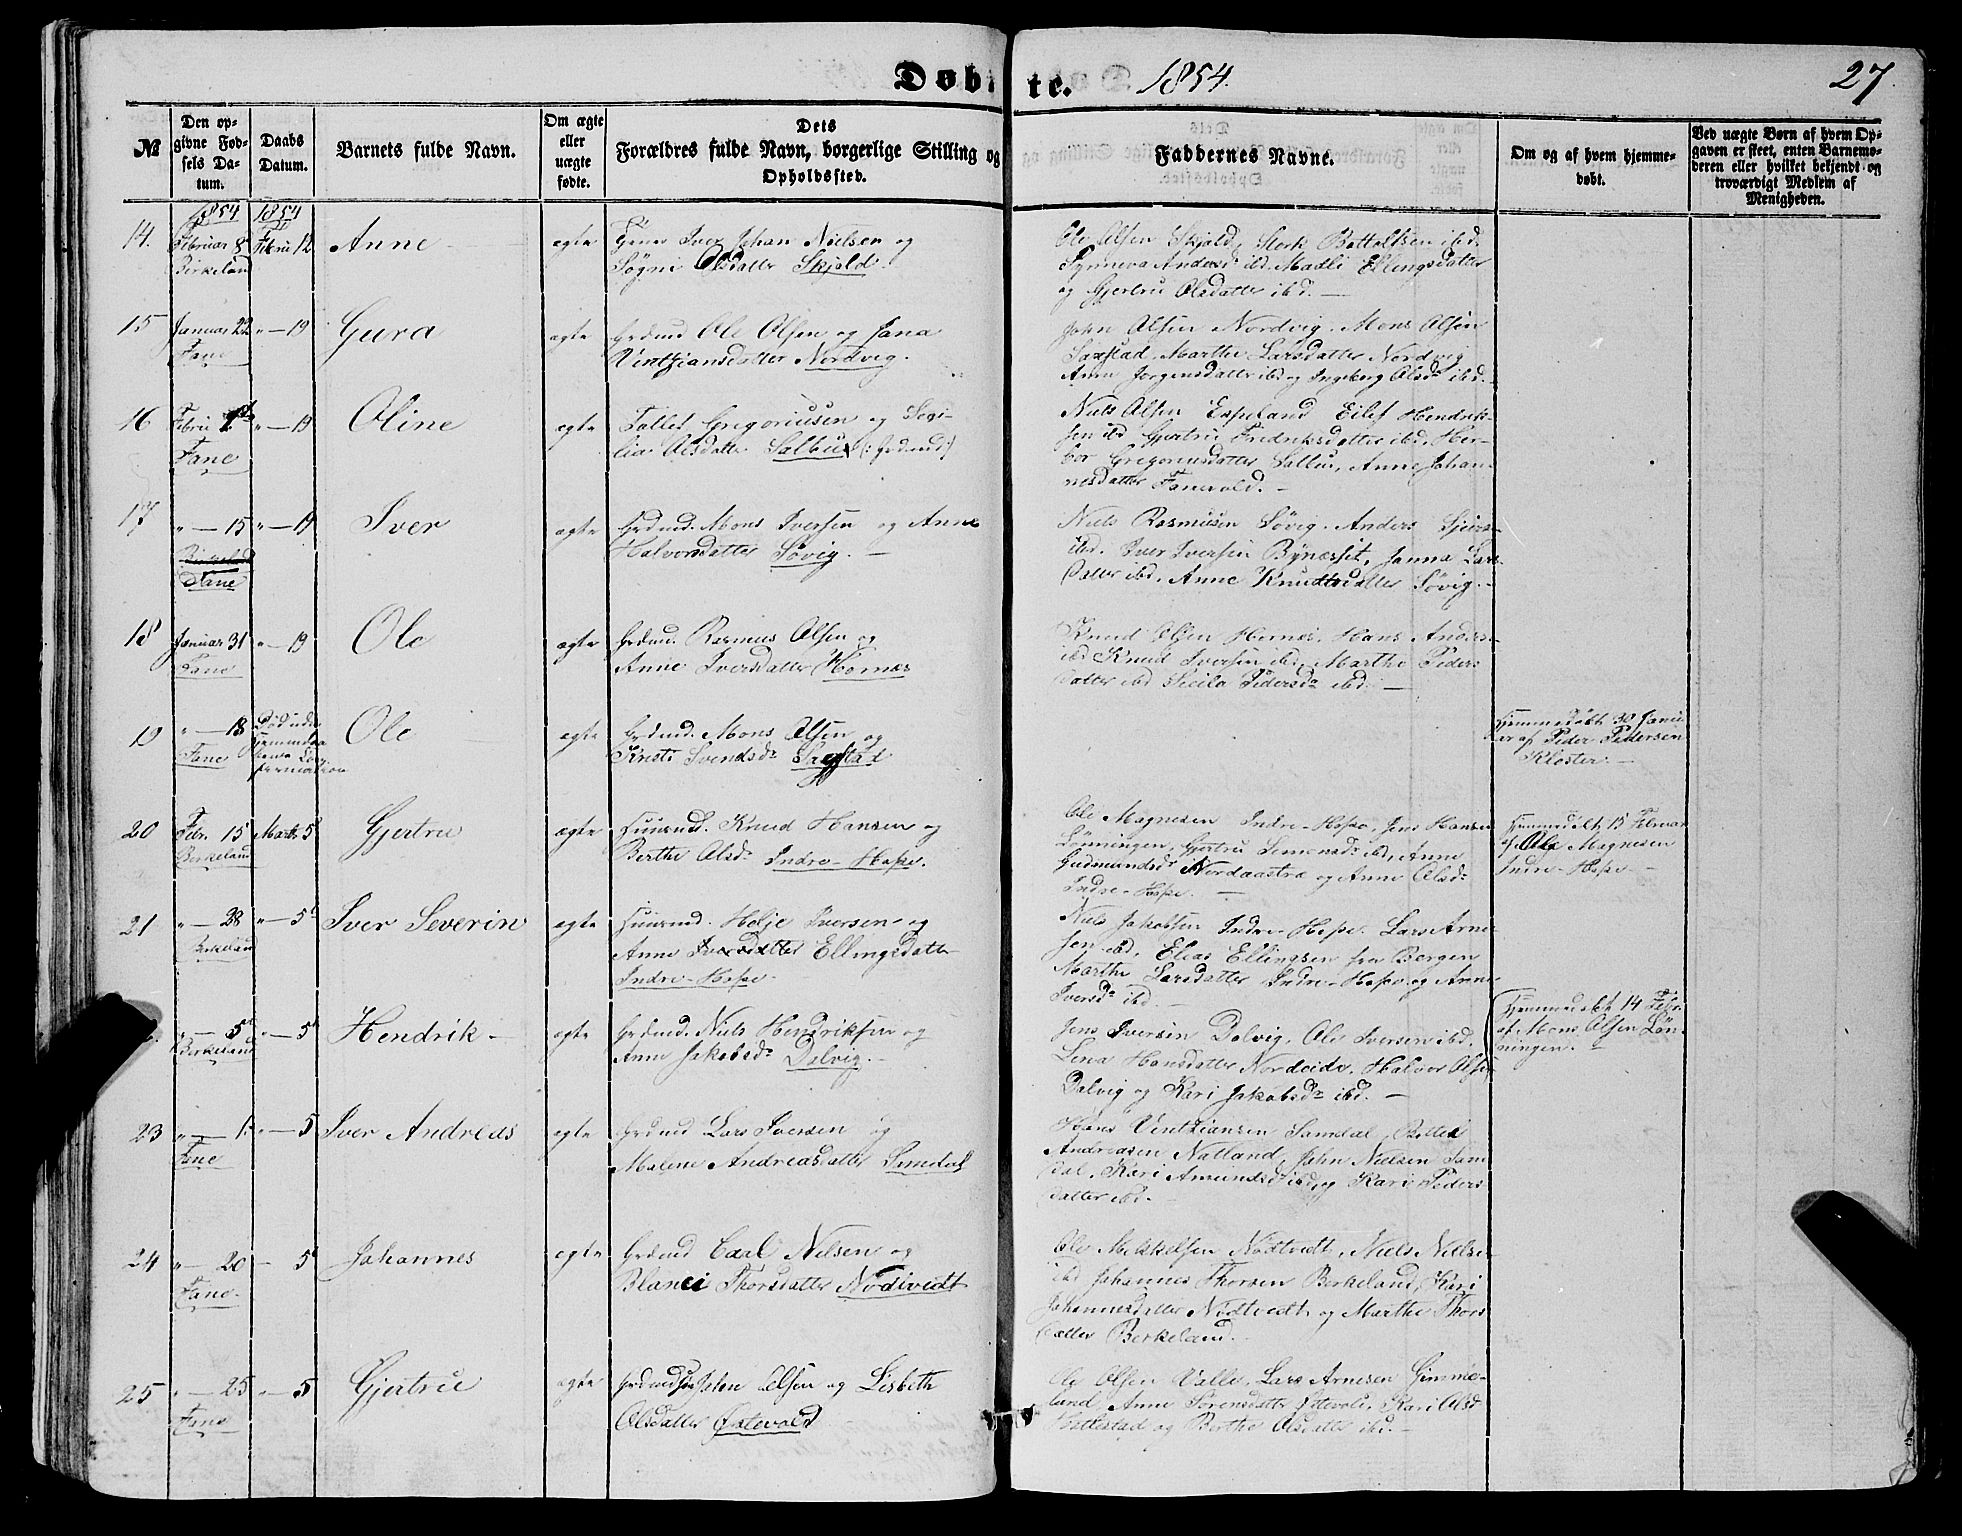 Døbte. 1854. 27.
№
Den opgivne Fødsels Datum.
Daabs Datum.
Barnets fulde Navn.
Om ægte eller uægte fødte.
Dets Forældres fulde Navn, borgerlige Stilling og Opholdssted.
Faddernes Navne.
Om og af hvem hjemmedøbt.
Ved uægte Børn af hvem Opgaven er skeet, enten Barnemoderen eller hvilket bekjendt og troværdigt Medlem af Menigheden.
1854 1854
14. Februar 8 Febru 12 Anne ægte Iver Johan Nielsen og
Birkeland Søgni Olsdatter Skjold.
Ole Olsen Skjold, Sterk Bottolfsen ibd.
Synneva Andersd. ibd. Madli Ellingsdatter
og Gjertru Olsdatter ibd. —
15 Januar 22 " — 19 Gura ægte Grdmd Ole Olsen og Jana
Fane Ventziansdatter Nordvig.
John Olsen Nordvig. Mons Olsen
Saxstad, Marthe Larsdatter Nordvig
Anne Jorgensdatter ibd og Ingeborg Olsdr ibd.
16 Febru Oline ægte Tollef Gregoriusen og
Fane Olsdatter Salbu (: Grdmd :)
Niels Olsen Espeland Eilef Hendrik-
sen ibd, Gjertru Fredriksdatter ibd, Her-
bor Gregoriusdatter Salbu, Anne Johan-
nesdatter Fanevold. —
17 " — 15 " — 19 Iver ægte Grdmd. Mons Iversen og Anne
Birkeland Halvorsdatter Søvig. —
Fane
Niels Rasmusen Søvig. Anders
ibd. Iver Iversen Bynæsset, Janna Lars-
datter ibd, Anne Knudtsdatter Søvig. —
18 Januar 31 " — 19 Ole ægte Grdmd. Rasmus Olsen og
Fane Anne Iversdatter Hornæs
Knud Olsen Hornæs, Hans Anders-
ibd Knud Iversen ibd, Marthe Peders
datter ibd Sicila Pedersdr ibd. —
19 " — 18 Død uden Ole ægte Grdmd. Mons Olsen og
Fane Kristi Svendsdr Saxstad
Hjemmedøbt 30 Janu-
ar af Peder Pedersen
Kloster. —
20 Febr. 15 Marts 5 Gjertru ægte Huusmd. Knud Hansen og
Berkeland Berthe Olsdr Indre-Hope.
Ole Magnesen Indre-Hope, Jens Hansen
Lønningen, Gjertru Simonsdr ibd, Anne
Gudmundsdr Nordaastræ og Anne Olsdr
Indre-Hope. —
Hjemmedøbt 15 Februar
af Ole Magnesen
Indre-Hope —
21 " — 28 " — 5 Iver Severin ægte Huusmd. Helje Iversen og
Berkeland Anne Iversdatter Ellingsdatter
Indre-Hope
Niels Jakobsen Indre-Hope. Lars Arne-
sen ibd, Elias Ellingsen fra Bergen
Marthe Larsdatter Indre-Hope og Anne
Iversdr ibd. —
" — 5 " — 5 Hendrik — ægte Grdmd. Niels Hendriksen og
Berkeland Anne Jakobsdr Dalvig. —
Jens Iversen Dalvig, Ole Iversen ibd.
Lena Hansdatter Nordeide, Halvor Olsen
Dalvig og Kari Jakobsdr ibd. —
Hjemmedøbt 14 Febr.
af Mons Olsen Løn-
ningen. —
23 " — 1 " — 5 Iver Andreas ægte Grdmd Lars Iversen og
Fane Malene Andreasdatter Smedal
Hans Ventziansen Samdal, Botler
Andreasen Natland, John Nielsen Sam-
dal, Kari Amundsd ibd, og Kari Peders
datter ibd. —
24 " — 20 — 5 Johannes ægte Grdmd Carl Nilsen og
Fane Blanci Thorsdatter Nødtvedt
Ole Mikkelsen Nødtvedt, Niels Nielsen
ibd Johannes Thorsen Berkeland, Kari
Johannesdatter Nødtvedt og Marthe Thors
datter Berkeland. —
25 " — 25 " — 5 Gjertru ægte John Olsen og Lisbeth
Fane Olsdatter Østevold
Ole Olsen Valle, Lars Arnesen Himme-
land Anne Sørensdatter Østevold, Kari Olsd
og Berthe Olsdatter ibd. —